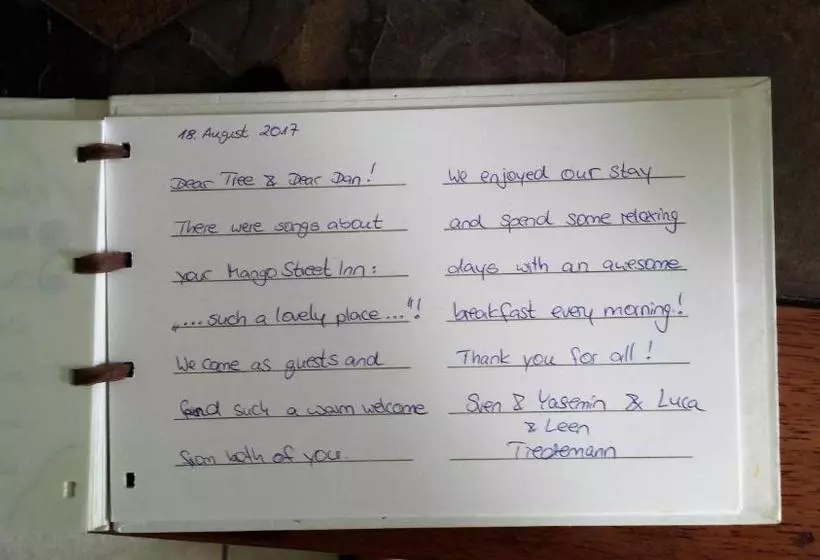 18. August 2017
Dear Tree & Dear Dan!
There were songs about
your Mango Street Inn:
„... such a lovely place ..."!
We come as guests and
find such a warm welcome
from both of you.
We enjoyed our stay
and spend some relaxing
days with an awesome
breakfast every morning!
Thank you for all!
Sven & Yasemin & Luca
& Leen